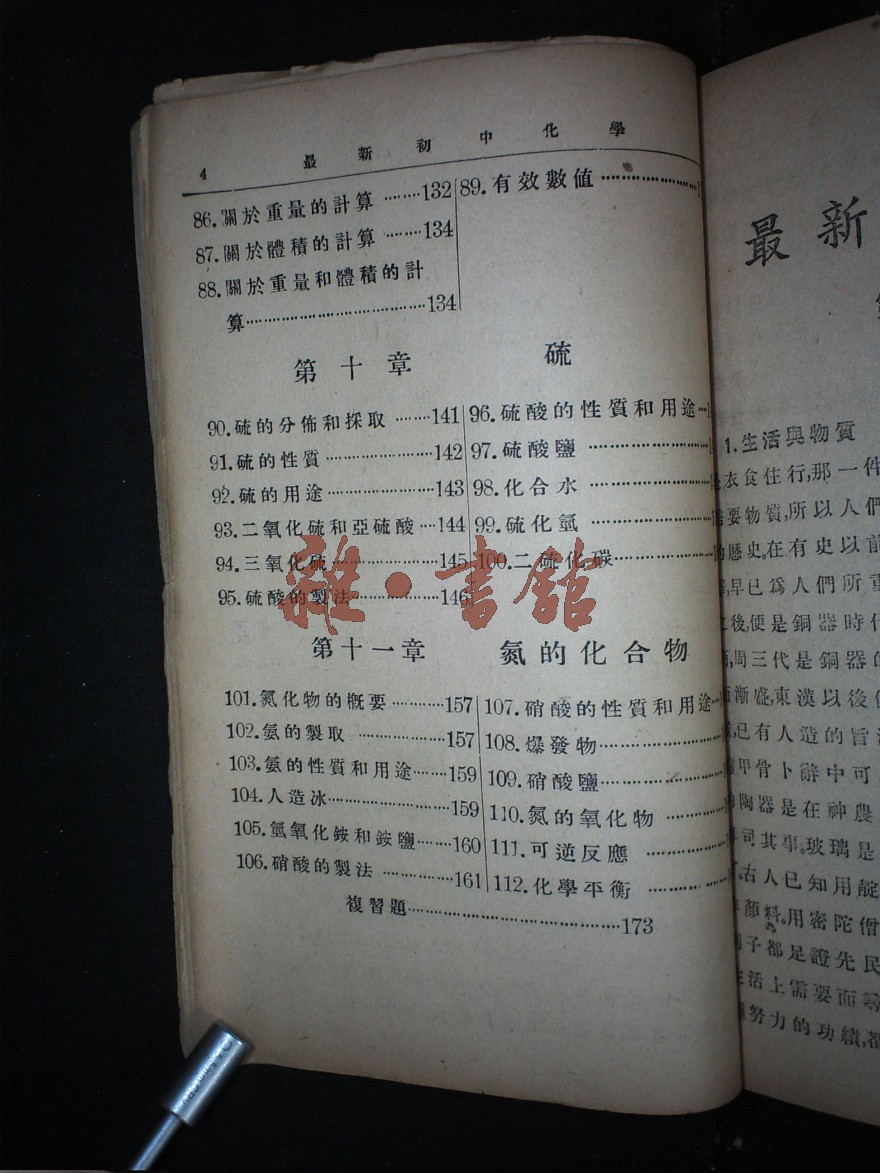 4 最新初中化學
86.關於重量的計算 ········132
87.關於體積的計算 ········134
88.關於重量和體積的計
算··································134
89.有效數值 ······················1
第十章 硫
90.硫的分佈和採取 ·······141
91.硫的性質 ······················142
92.硫的用途 ······················143
93.二氧化硫和亞硫酸 ···144
94.三氧化硫 ······················145
95.硫酸的製法 ·················146
96.硫酸的性質和用途···1
97.硫酸鹽 ·······················1
98.化合水 ·······················1
99.硫化氫 ·······················1
100.二硫化碳···················
雜·書館
第十一章 氮的化合物
101.氮化物的概要 ···········157
102.氨的製取 ··················157
103.氨的性質和用途·······159
104.人造冰·······················159
105.氫氧化銨和銨鹽······160
106.硝酸的製法 ··············161
107.硝酸的性質和用途··
108.爆發物·······················
109.硝酸鹽·······················
110.氮的氧化物 ············1
111.可逆反應 ················1
112.化學平衡 ················1
複習題·······································173
最新
1.生活與物質
衣食住行,那一件
要物質,所以人們
歷史.在有史以前
早已爲人們所重
後,便是銅器時代
周三代是銅器的
漸盛,東漢以後
已有人造的旨
甲骨卜辭中可
陶器是在神農
司其事.玻璃是
古人已知用靛
顏料.用密陀僧
子都足證先民
活上需要而尋
努力的功績,都